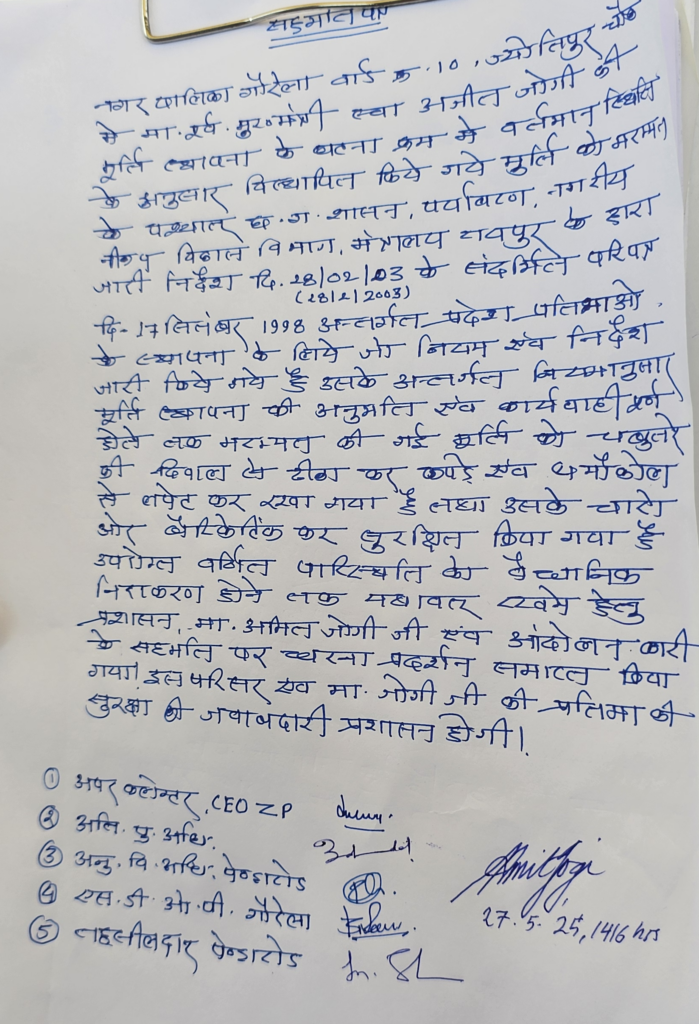 सहमति पत्र
नगर पालिका गौरेला वार्ड क्र. 10, ज्योतिपुर चौक
मे मा. पूर्व. मुख्यमंत्री स्व। अजीत जोगी की
मूर्ति स्थापना के घटना क्रम मे वर्तमान स्थिति
के अनुसार विस्थापित किये गये मूर्ति को मरम्मत
के पश्चात् छ. ग. शासन, पर्यावरण, नगरीय
विकास विभाग, मंत्रालय रायपुर के द्वारा
जारी निर्देश दि. 28/02/03 के संदर्भित परिपत्र
(28/2/2003)
दि. 17 सितंबर 1998 अन्तर्गत प्रदेश प्रतिमाओ
के स्थापना के लिये जो नियम एंव निर्देश
जारी किये गये है उसके अन्तर्गत नियमानुसार
मूर्ति स्थापना की अनुमति एंव कार्यवाही पूर्ण
होते तक मरम्मत की गई मूर्ति को चबुतरे
की दिवाल से टीका कर कपड़े एंव थर्माकोल
से लपेट कर रखा गया है तथा उसके चारो
ओर बैरिकेटिंग कर सुरक्षित किया गया है
उपरोक्त वर्णित परिस्थिति का वैधानिक
निराकरण होने तक यथावत् रखने हेतु
प्रशासन, मा. अमित जोगी जी एंव आंदोलन कारी
के सहमति पर धरना प्रदर्शन समाप्त किया
गया। इस परिसर एंव मा. जोगी जी की प्रतिमा की
सुरक्षा की जवाबदारी प्रशासन होगी।
① अपर कलेक्टर, CEO ZP
② अति. पु. अधि.
③ अनु. वि. अधि. पेण्ड्रारोड
④ एस. डी. ओ. पी. गौरेला
⑤ तहसीलदार पेण्ड्रारोड
Amit Jogi
27. 5. 25, 1416 hrs